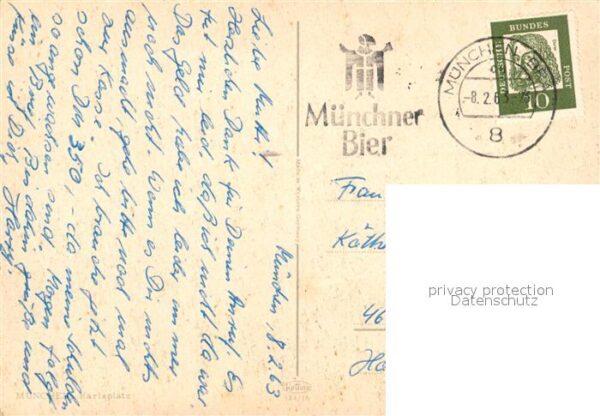 München, 8.2.63
Liebe Mutti!
Herzlichen Dank für Deinen Anruf. Es
tut mir leid, daß ich nicht da war.
Das Geld habe ich leider immer
noch nicht. Wenn es Dir nichts
ausmacht, geh bitte noch mal
zur Kasse. Ich brauche jetzt
schon DM 350,- da meine Schulden
so angewachsen sind. Morgen folgt
ein Brief. Bis dahin grüßt und
küsst Dich
MÜNCHEN Karlsplatz
Münchner
Bier
MÜNCHEN
-8.2.63
8
DEUTSCHE
BUNDES
POST
10
Frau
Käth
46
privacy protection
Datenschutz